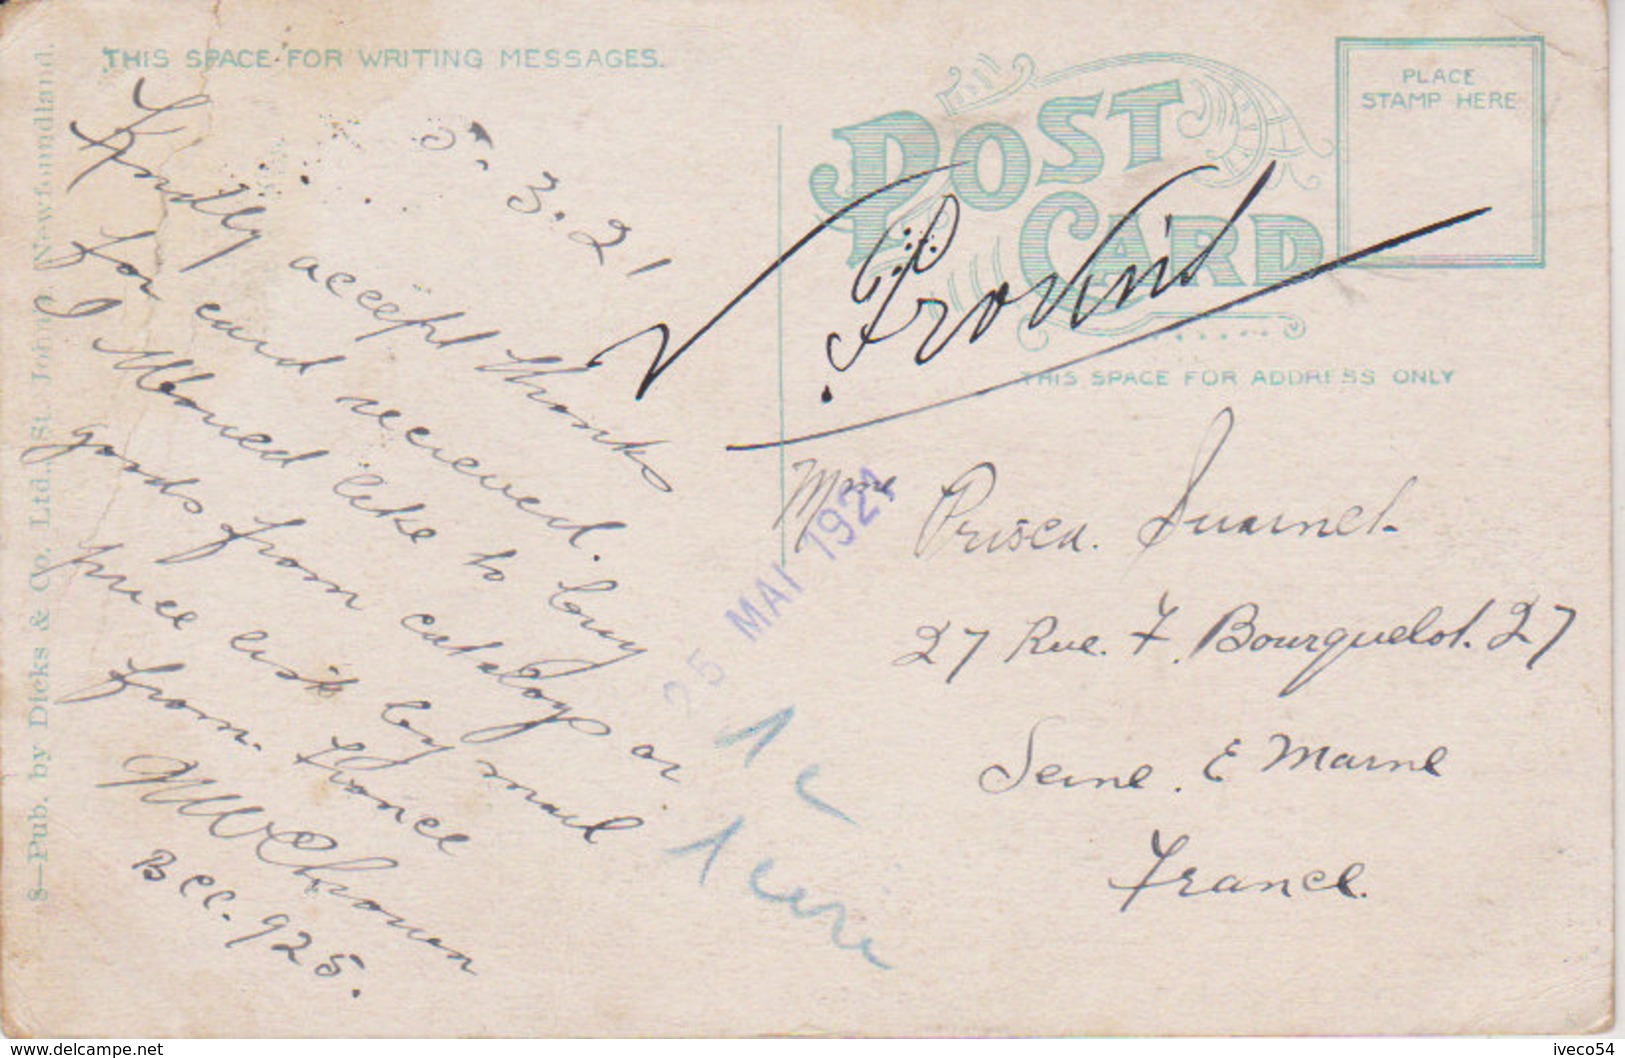 THIS SPACE FOR WRITING MESSAGES.
5. 3. 21
Kindly accept thanks
for card received.
I Would like to buy
goods from catalogs or
price list by mail
from. France
Bcc. 925.
8—Pub. by Dicks & Co. Ltd., St. John's, Newfoundland.
POST CARD
PLACE
STAMP HERE
THIS SPACE FOR ADDRESS ONLY
Mme Prisca.
27 Rue. F. Bourquelot. 27
Seine. E Marne
France.
25 MAI 1921
www.delcampe.net
iveco54